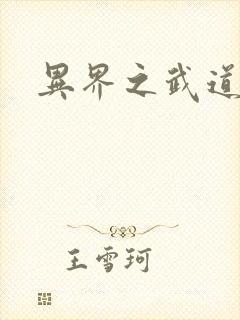 異界之武道
王雪珂